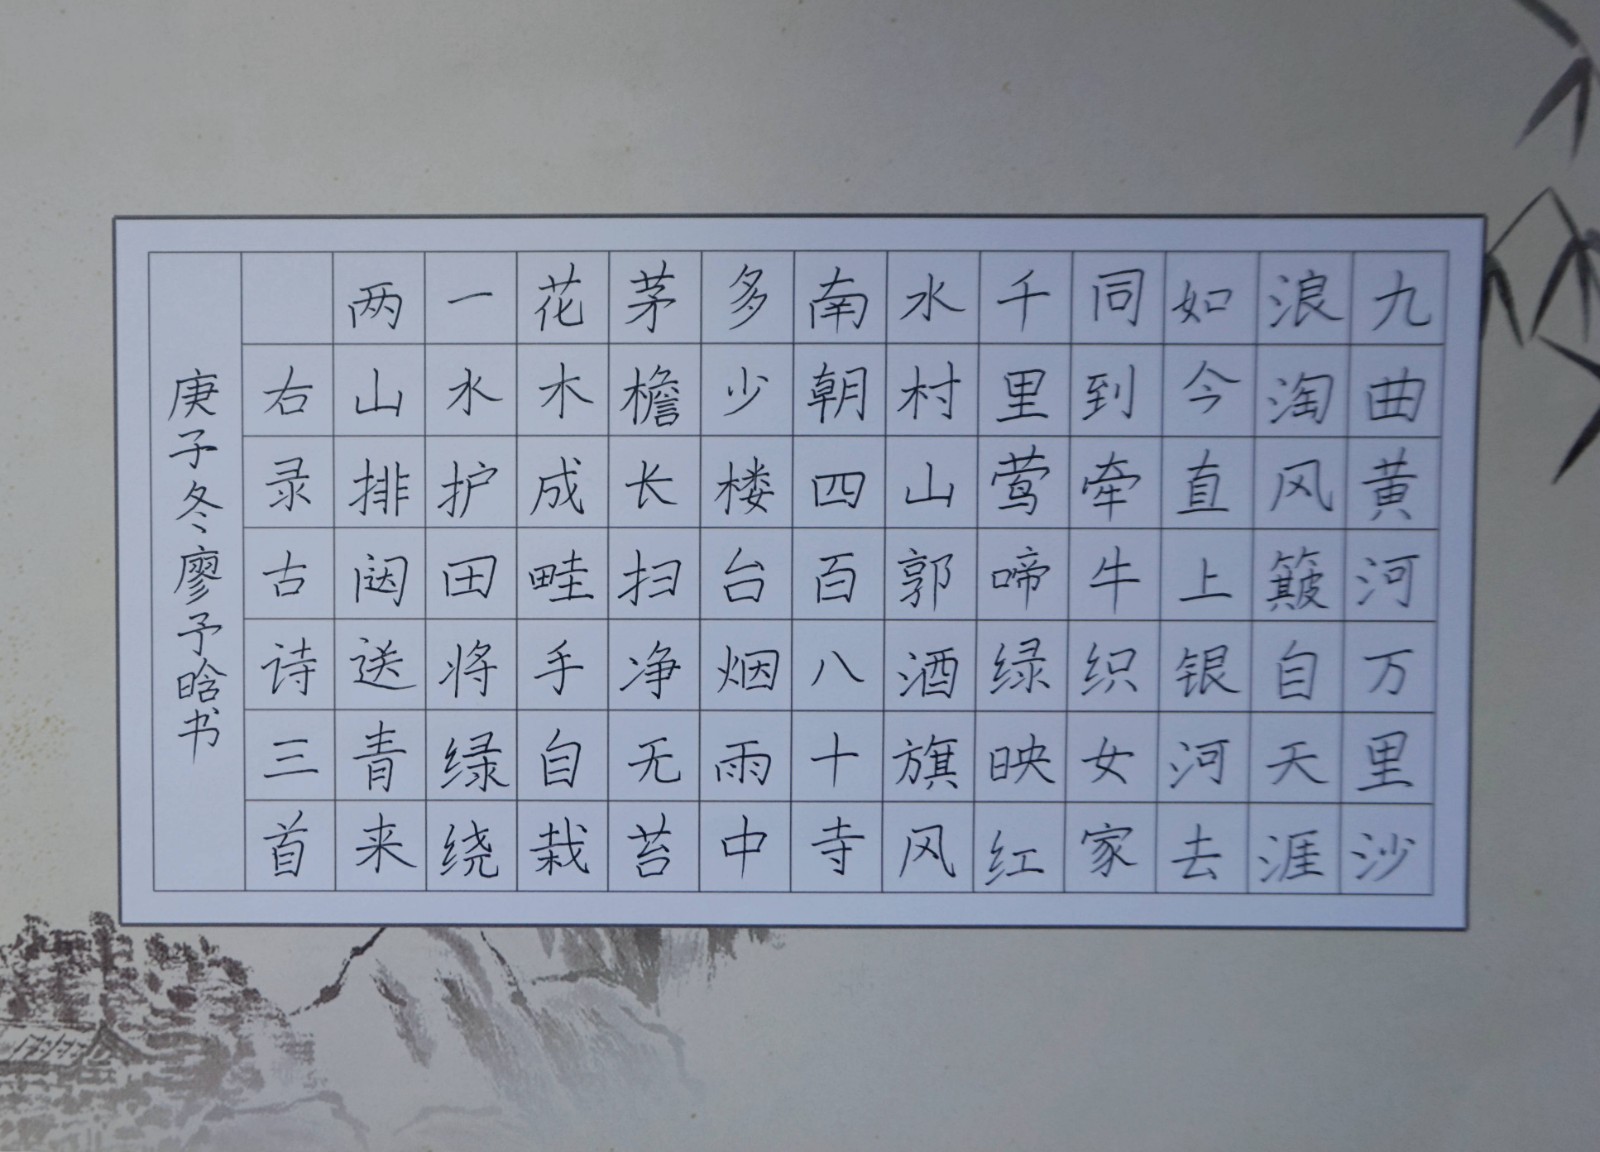 九曲黄河万里沙
浪淘风簸自天涯
如今直上银河去
同到牵牛织女家
千里莺啼绿映红
水村山郭酒旗风
南朝四百八十寺
多少楼台烟雨中
茅檐长扫净无苔
花木成畦手自栽
一水护田将绿绕
两山排闼送青来
右录古诗三首
庚子冬廖予晗书